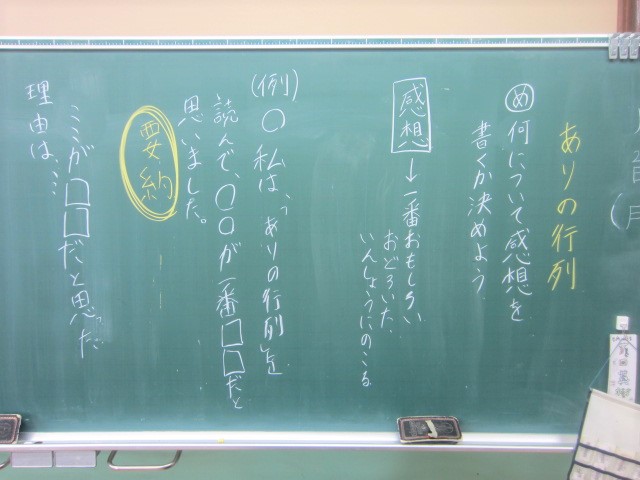 ありの行列
め 何について感想を
書くか決めよう
感想 → 一番おもしろい
おどろいた
いんしょうにのこる
(例) ○ 私は、「ありの行列」を
読んで、○○が一番□□だと
思いました。
要約
理由は、…
ここが□□だと思った